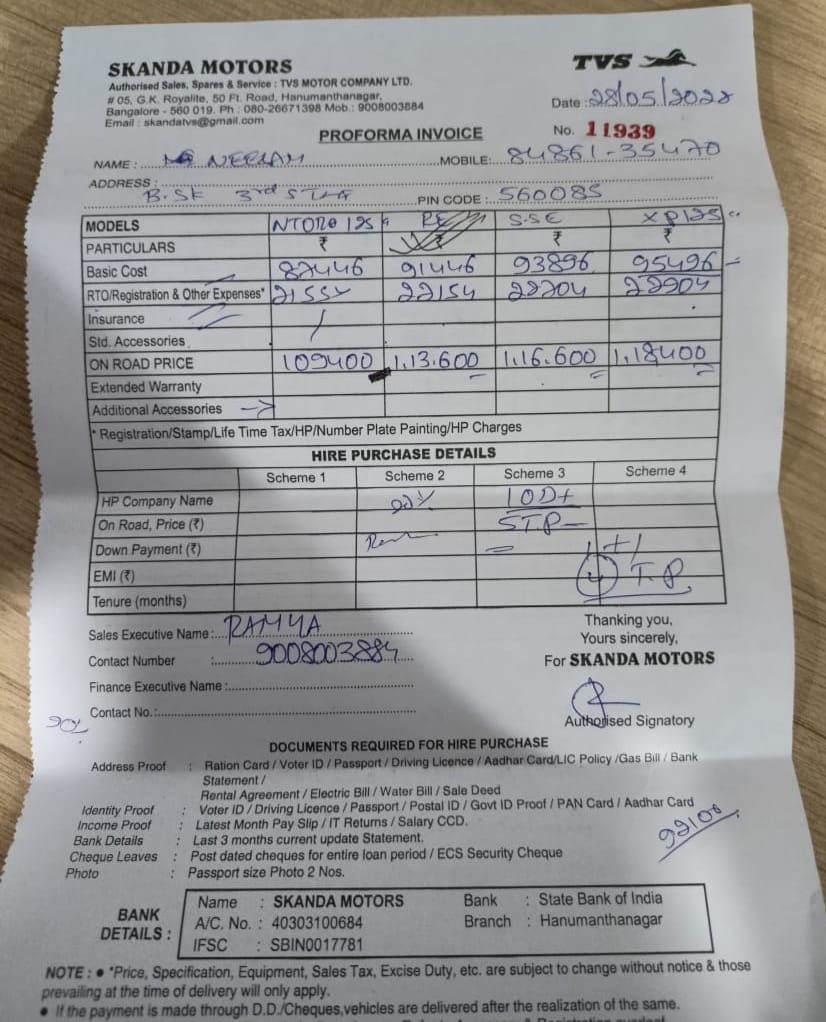 SKANDA MOTORS
TVS
Authorised Sales, Spares & Service : TVS MOTOR COMPANY LTD.
# 05, G.K. Royalite, 50 Ft. Road, Hanumanthanagar,
Bangalore - 560 019. Ph : 080-26671398 Mob.: 9008003884
Email : skandatvs@gmail.com
Date : 28/05/2022
PROFORMA INVOICE
No. 11939
NAME : NEELAM MOBILE: 84861-35470
ADDRESS : B.SK 3rd
PIN CODE : 560085
MODELS NTORQ 125 RE S.SE XP125
PARTICULARS ₹ ₹ ₹ ₹
Basic Cost 87446 91446 93896 95496
RTO/Registration & Other Expenses* 22154 22704 22904
Insurance
Std. Accessories
ON ROAD PRICE 109400 1,13.600 1,16.600 1,18400
Extended Warranty
Additional Accessories
* Registration/Stamp/Life Time Tax/HP/Number Plate Painting/HP Charges
HIRE PURCHASE DETAILS
Scheme 1 Scheme 2 Scheme 3 Scheme 4
HP Company Name 1OD+
On Road, Price (₹) 5T.P
Down Payment (₹) 1+1
EMI (₹) 4 T.P.
Tenure (months)
Sales Executive Name : RAMYA
Contact Number : 9008003884
Finance Executive Name :
Contact No.:
Thanking you,
Yours sincerely,
For SKANDA MOTORS
Authorised Signatory
DOCUMENTS REQUIRED FOR HIRE PURCHASE
Address Proof : Ration Card / Voter ID / Passport / Driving Licence / Aadhar Card/LIC Policy /Gas Bill / Bank
Statement /
Rental Agreement / Electric Bill / Water Bill / Sale Deed
Identity Proof : Voter ID / Driving Licence / Passport / Postal ID / Govt ID Proof / PAN Card / Aadhar Card
Income Proof : Latest Month Pay Slip / IT Returns / Salary CCD.
Bank Details : Last 3 months current update Statement.
Cheque Leaves : Post dated cheques for entire loan period / ECS Security Cheque
Photo : Passport size Photo 2 Nos.
99100
BANK
DETAILS :
Name : SKANDA MOTORS
A/C. No. : 40303100684
IFSC : SBIN0017781
Bank : State Bank of India
Branch : Hanumanthanagar
NOTE : ● *Price, Specification, Equipment, Sales Tax, Excise Duty, etc. are subject to change without notice & those
prevailing at the time of delivery will only apply.
● If the payment is made through D.D./Cheques,vehicles are delivered after the realization of the same.